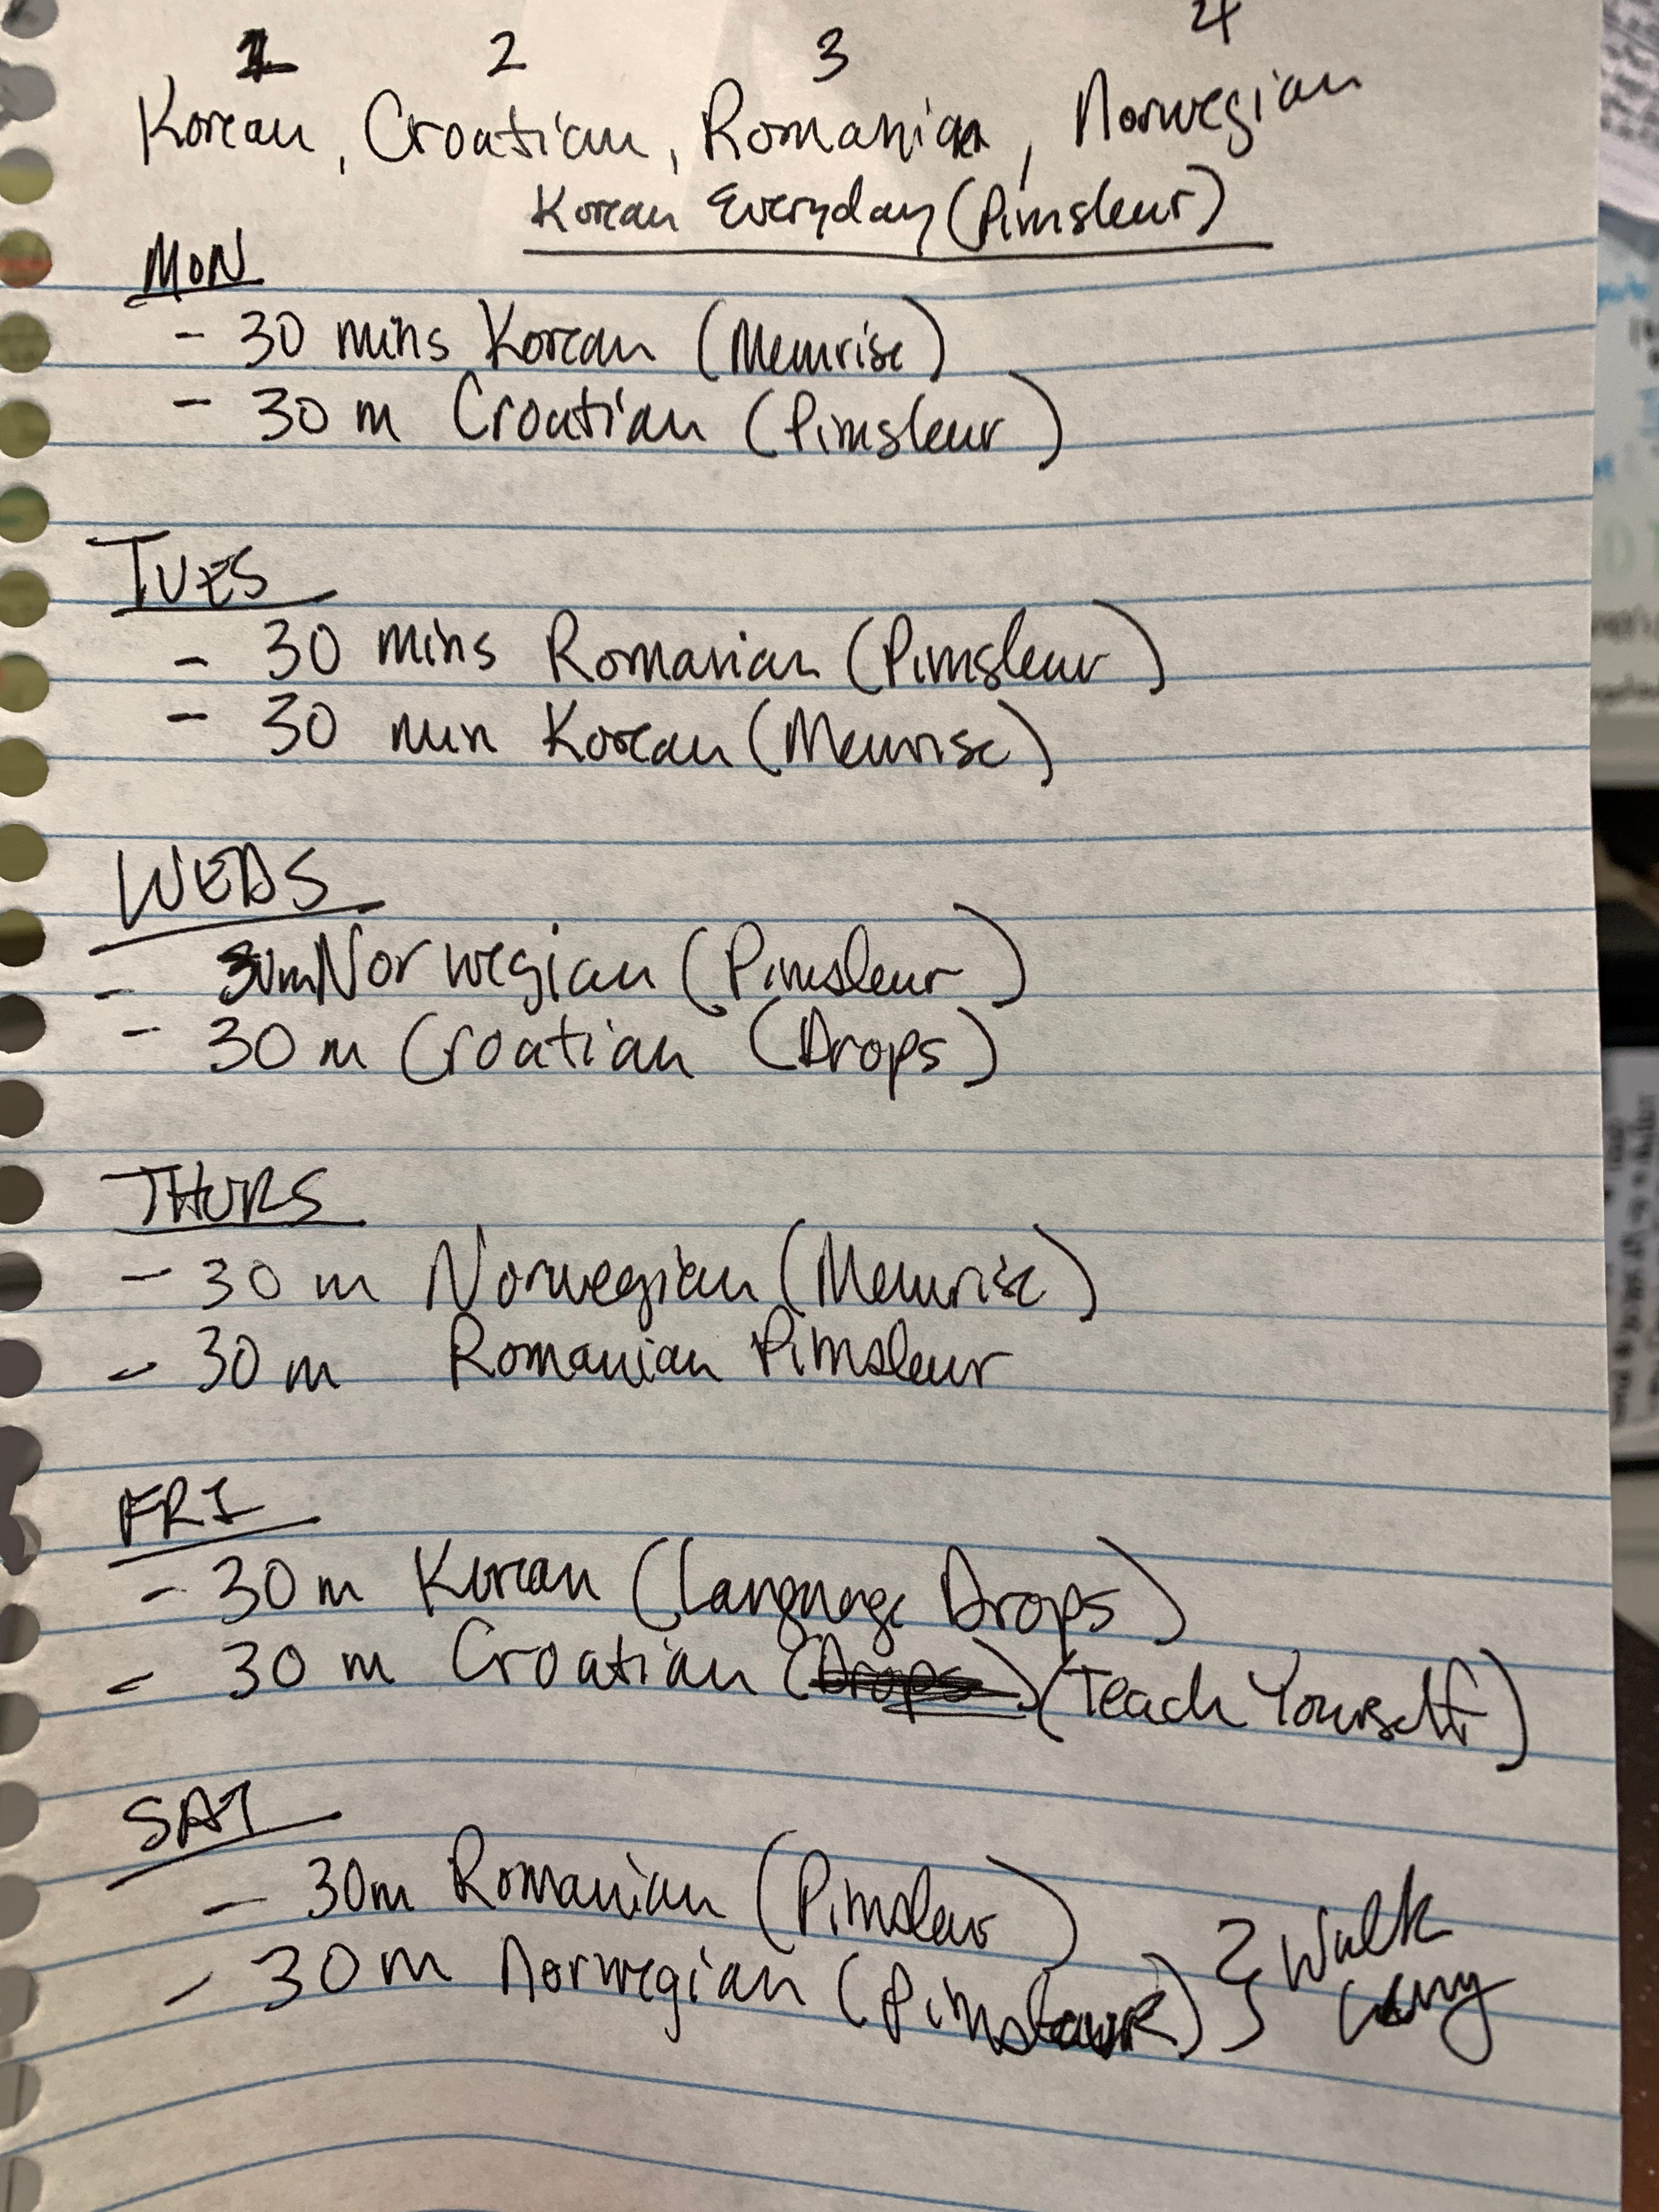 1 2 3 4
Korean, Croatian, Romanian, Norwegian
Korean Everyday (Pimsleur)
MON
- 30 mins Korean (Memrise)
- 30 m Croatian (Pimsleur)
TUES
- 30 mins Romanian (Pimsleur)
- 30 min Korean (Memrise)
WEDS
- 30m Norwegian (Pimsleur)
- 30 m Croatian (Drops)
THURS
- 30 m Norwegian (Memrise)
- 30 m Romanian Pimsleur
FRI
- 30 m Korean (Language Drops)
- 30 m Croatian (Drops) (Teach Yourself)
SAT
- 30m Romanian (Pimsleur)
- 30 m Norwegian (Pimsleur) } Walk